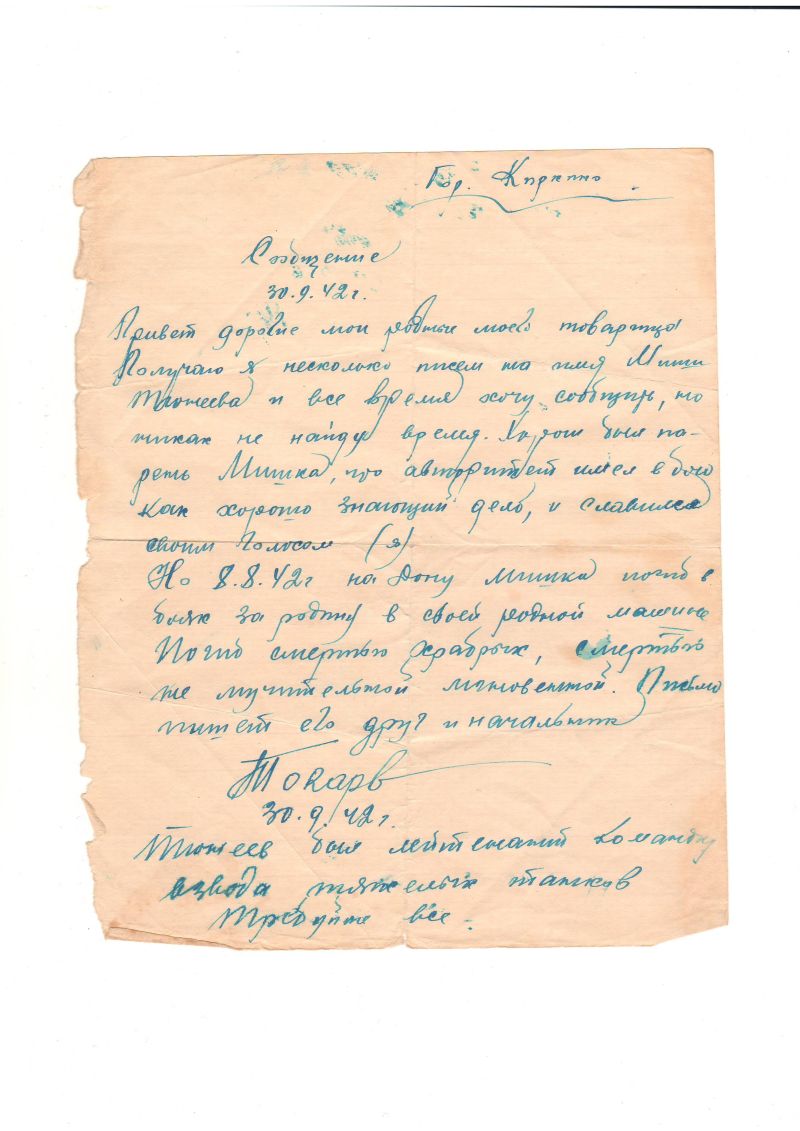 Гор. Киркино.
Сообщение
30.9.42 г.
Привет дорогие мои родные моего товарища
Получаю я несколько писем на имя Миши
и все время хочу сообщить, но
никак не найду время. Хорош был па-
рень Мишка, авторитет имел в бою
как хорошо знающий дело, и славился
своим голосом (я)
Но 8.8.42 г на Дону Мишка погиб в
боях за родину в своей родной машине
Погиб смертью храбрых, смертью
не мучительной мгновенной. Письмо
пишет его друг и начальник
Токарв
30.9.42 г.
был лейтенант
взвода тяжелых танков
Требуйте все.